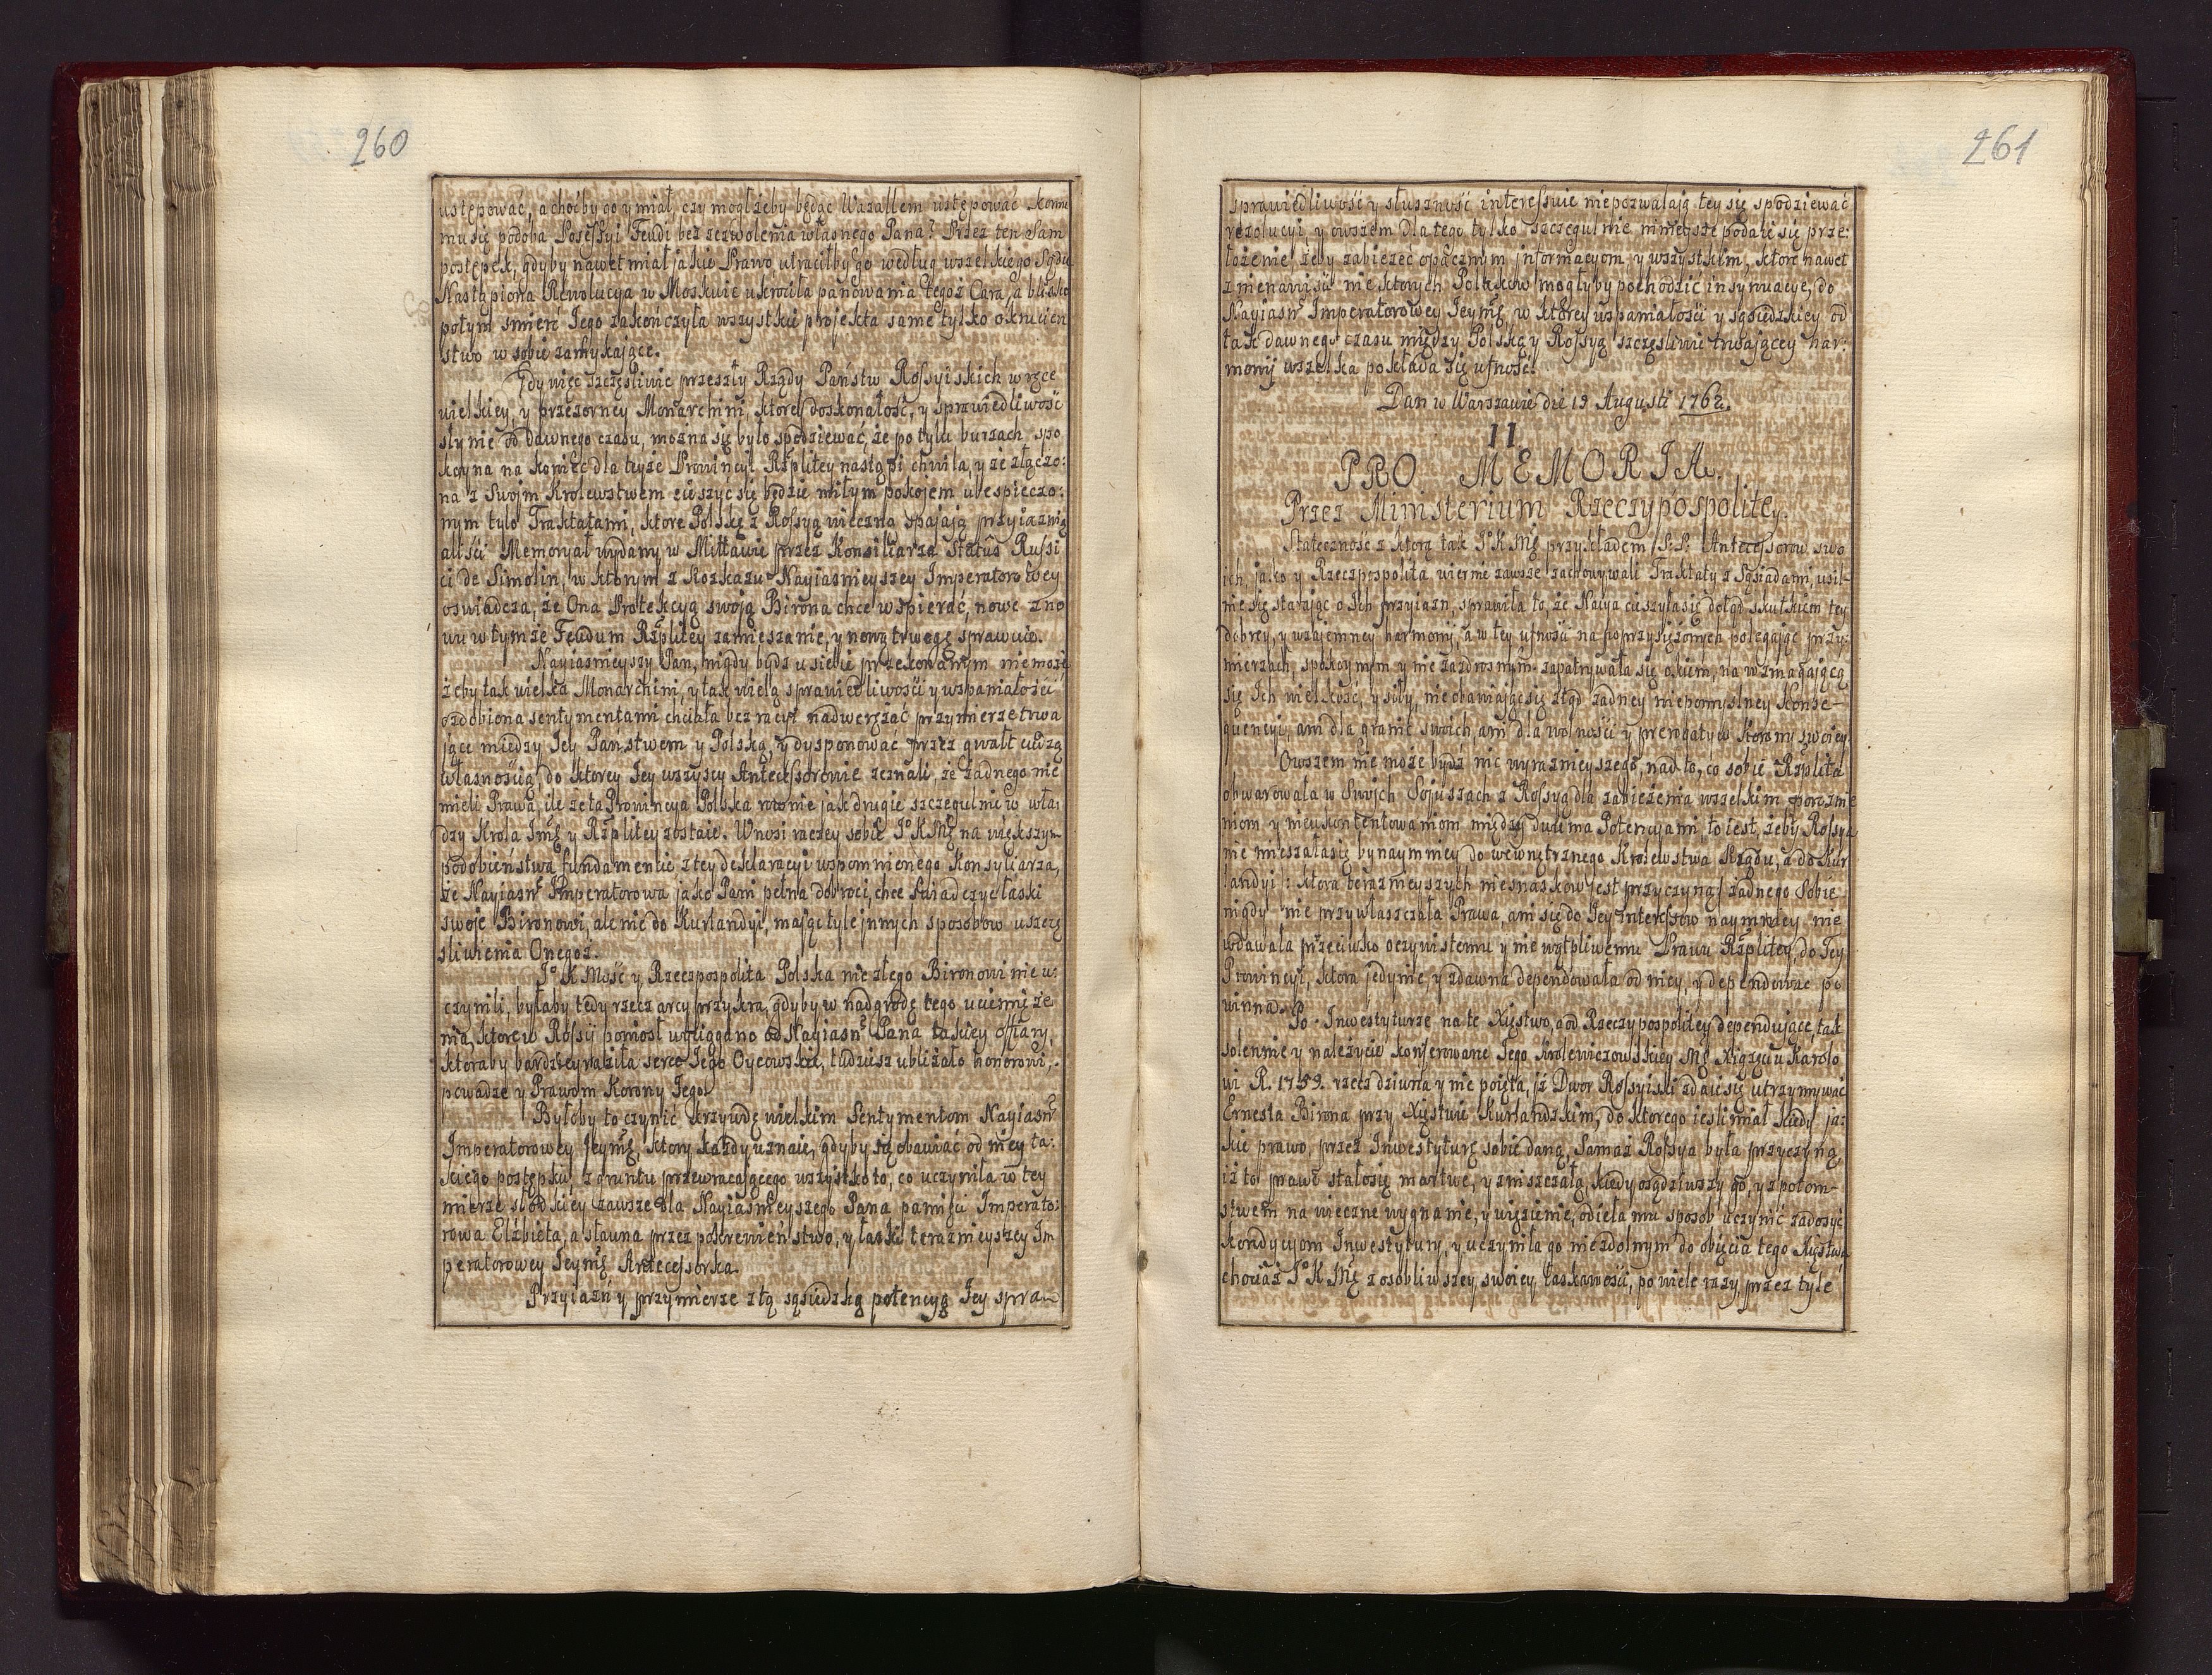 260
ustępować, a choćby go y miał, czy mogł żeby będąc Wazallem ustępować komu
mu się podoba Possessyi Feudi bez zezwolenia własnego Pana? Przez ten sam
postępek, gdyby nawet miał jakie Prawo, utraciłby go według wszelkiego Sądu
Nastąpiona Rewolucya w Moskwie ukrociła panowania tegoż Cara, a blisko
potym smierć Jego zakończyła wszystkie projekta same tylko okrucień
stwo w sobie zamykające.
Gdy więc szczęśliwie przeszły Rządy Państw Rossyiskich w ręce
wielkiey, y przezorney Monarchini, ktorey doskonałość, y sprawiedliwość
słynie od dawnego czasu, można się było spodziewać, że po tylu burzach spo
koyna na koniec dla teyże Prowincyi Rzplitey nastąpi chwila, y że złączo:
na z Swoim Krolewstwem cieszyć się będzie miłym pokojem ubespieczo:
nym tylo Traktatami, ktore Polskę z Rossyą wieczną spajają przyiaznią
aliści Memoryał wydany w Mittawie przez Konsiliarza Status Russi
ci de Simolin, w ktorym z Rozkazu Nayiasnieyszey Imperatorowey
oswiadcza, że Ona Protekcyą swoją Birona chce wspierać, nowe zno
wu w tymże Feudum Rzplitey zamieszanie, y nową trwogę sprawuie.
Nayiasnieyszy Pan, nigdy bydź u siebie przekonanym nie może
żeby tak wielka Monarchini, y tak wielą sprawiedliwości y wspaniałości
ozdobiona sentymentami chciała bez racyi nadwerężać przymierze trwa
jące między Jey Państwem y Polską, y dysponować przez gwałt cudzą
własnością, do ktorey Jey wszyscy Antecessorowie zeznali, że żadnego nie
mieli Prawa, ile że ta Prowincya Polska rownie jak drugie szczegulnie w wła:
dzy Krola Jmę y Rzplitey zostaie. Wnosi raczey sobie J.o K Mę na większym
podobieństwa fundamencie z tey deklaracyi wspomnienego Konsyliarza,
że Nayiasń Imperatorowa jako Pani pełna dobroci, chce świadczyć łaski
swoje Bironowi, ale nie do Kurlandyi, mając tyle jnnych sposobow uszczę
sliwienia Onegoż.
J.o K Mość y Rzeczpospolita Polska nic złego Bironowi nie u:
czynili, byłaby tedy rzecz arcy przykra, gdyby w nadgrodę tego uciemięże
nia, ktore w Rossyi poniosł wyciągano od Nayiasń Pana takiey offiary,
ktoraby bardziey raziła serce Jego Oycowskie, tudziesz ubliżało honorowi,
powadze y Prawom Korony Jego.
Byłoby to czynić krzywdę wielkim Sentymentom Nayiasń
Imperatorowey Jeymę, ktory każdy uznaie, gdyby się obawiać od niey ta:
kiego postępku, z gruntu przewracającego wszystko to, co uczyniła w tey
mierze słodkiey zawsze dla Nayiasnieyszego Pana pamięci Imperato:
rowa Elżbieta, a sławna przez pokrewieństwo, y łaski terazmieyszey Im
peratorowey Jeymę Antecessorka.
Przyiaźń y przymierze z tą sąsiedzką potencyą Jey spra

261
sprawiedliwość y słuszność interessuie niepozwalają tey się spodziewać
rezolucyi y owszem dla tego tylko szczegulnie ninieysze podaie się prze:
łożenie, żeby zabieżeć opacznym jnformacyom y wszystkim, ktore nawet
z nienawiści niektorych Polakow mogłyby pochodzić insynuacye, do
Nayiasń Imperatorowey Jeymę, w ktorey wspaniałości y sąsiedzkiey od
tak dawnego czasu między Polską y Rossyą szczęsliwie trwającey har:
monij wszelka pokłada się ufność.
Dan w Warszawie die 19 Augusti 1762.
11
PRO MEMORIA.
Przez Ministerium Rzeczypospolitey.
Stateczność z ktorą tak J.o K Mę przykładem SS: Antecessorow swo
ich jako y Rzeczpospolita wiernie zawsze zachowywali Traktaty z Sąsiadami, usil-
nie się starając o Ich przyiazn, sprawiła to, że Nacya cieszyła się dotąd skutkiem tey
dobrey, y wzajemney harmonij, a w tey ufności na poprzysiężonych polegając przy:
mierzach, spokoynym y nie zazdrosnym zapatrywała się okiem, na wzmagającą
się Ich wielkość, y siły, nie obawiając się ztąd żadney niepomyslney Konse-
quencyi, ani dla granic swoich, ani dla wolności y prerogatyw Korony swoiey.
Owszem nie może bydź nic wyraznieyszego, nad to, co sobie Rzplita
obwarowała w Swych Sojuszach z Rossyą dla zabieżenia wszelkim porożnie
niom y nieukontentowaniom między dwiema Potencyami, to iest, żeby Rossya
nie mieszała się bynaymniey do wewnętrznego Krolewstwa Rządu, a do Kur
landyi: ktora terazmieyszych niesnaskow jest przyczyną / żadnego Sobie
nigdy nie przywłaszczała Prawa, ani się do Jey Interessow naymniey nie
wdawała przeciwko oczywistemu y nie wątpliwemu Prawu Rzplitey, do Tey
Prowincyi, ktora jedynie y zdawna dependowała od niey, y dependować po
winna.
Po Inwestyturze na te Xięstwo, a od Rzeczypospolitey dependujące, tak
solennie y należycie konferowane Jego Krolewiczowskiey Mę Xiążęciu Karolo
wi R. 1759. rzecz dziwna y nie poięta, jż Dwor Rossyiski zdaie się utrzymywać
Ernesta Birona przy Xięstwie Kurlandzkim, do ktorego iesli miał kiedy ja:
kie prawo, przez Inwestyturę sobie daną, Samaż Rossya była przyczyną,
iż to prawo stało się martwe, y zniszczałą, kiedy osądziwszy go, y z potom-
stwem na wieczne wygnanie, y więzienie, odieła mu sposob uczynić zadosyć
kondycyom Inwestytury, y uczyniła go niezdolnym do objęcia tego Xięstwa
chociaż J.o K Mę z osobliwszey swoiey łaskawości, po wiele razy, przez tyle